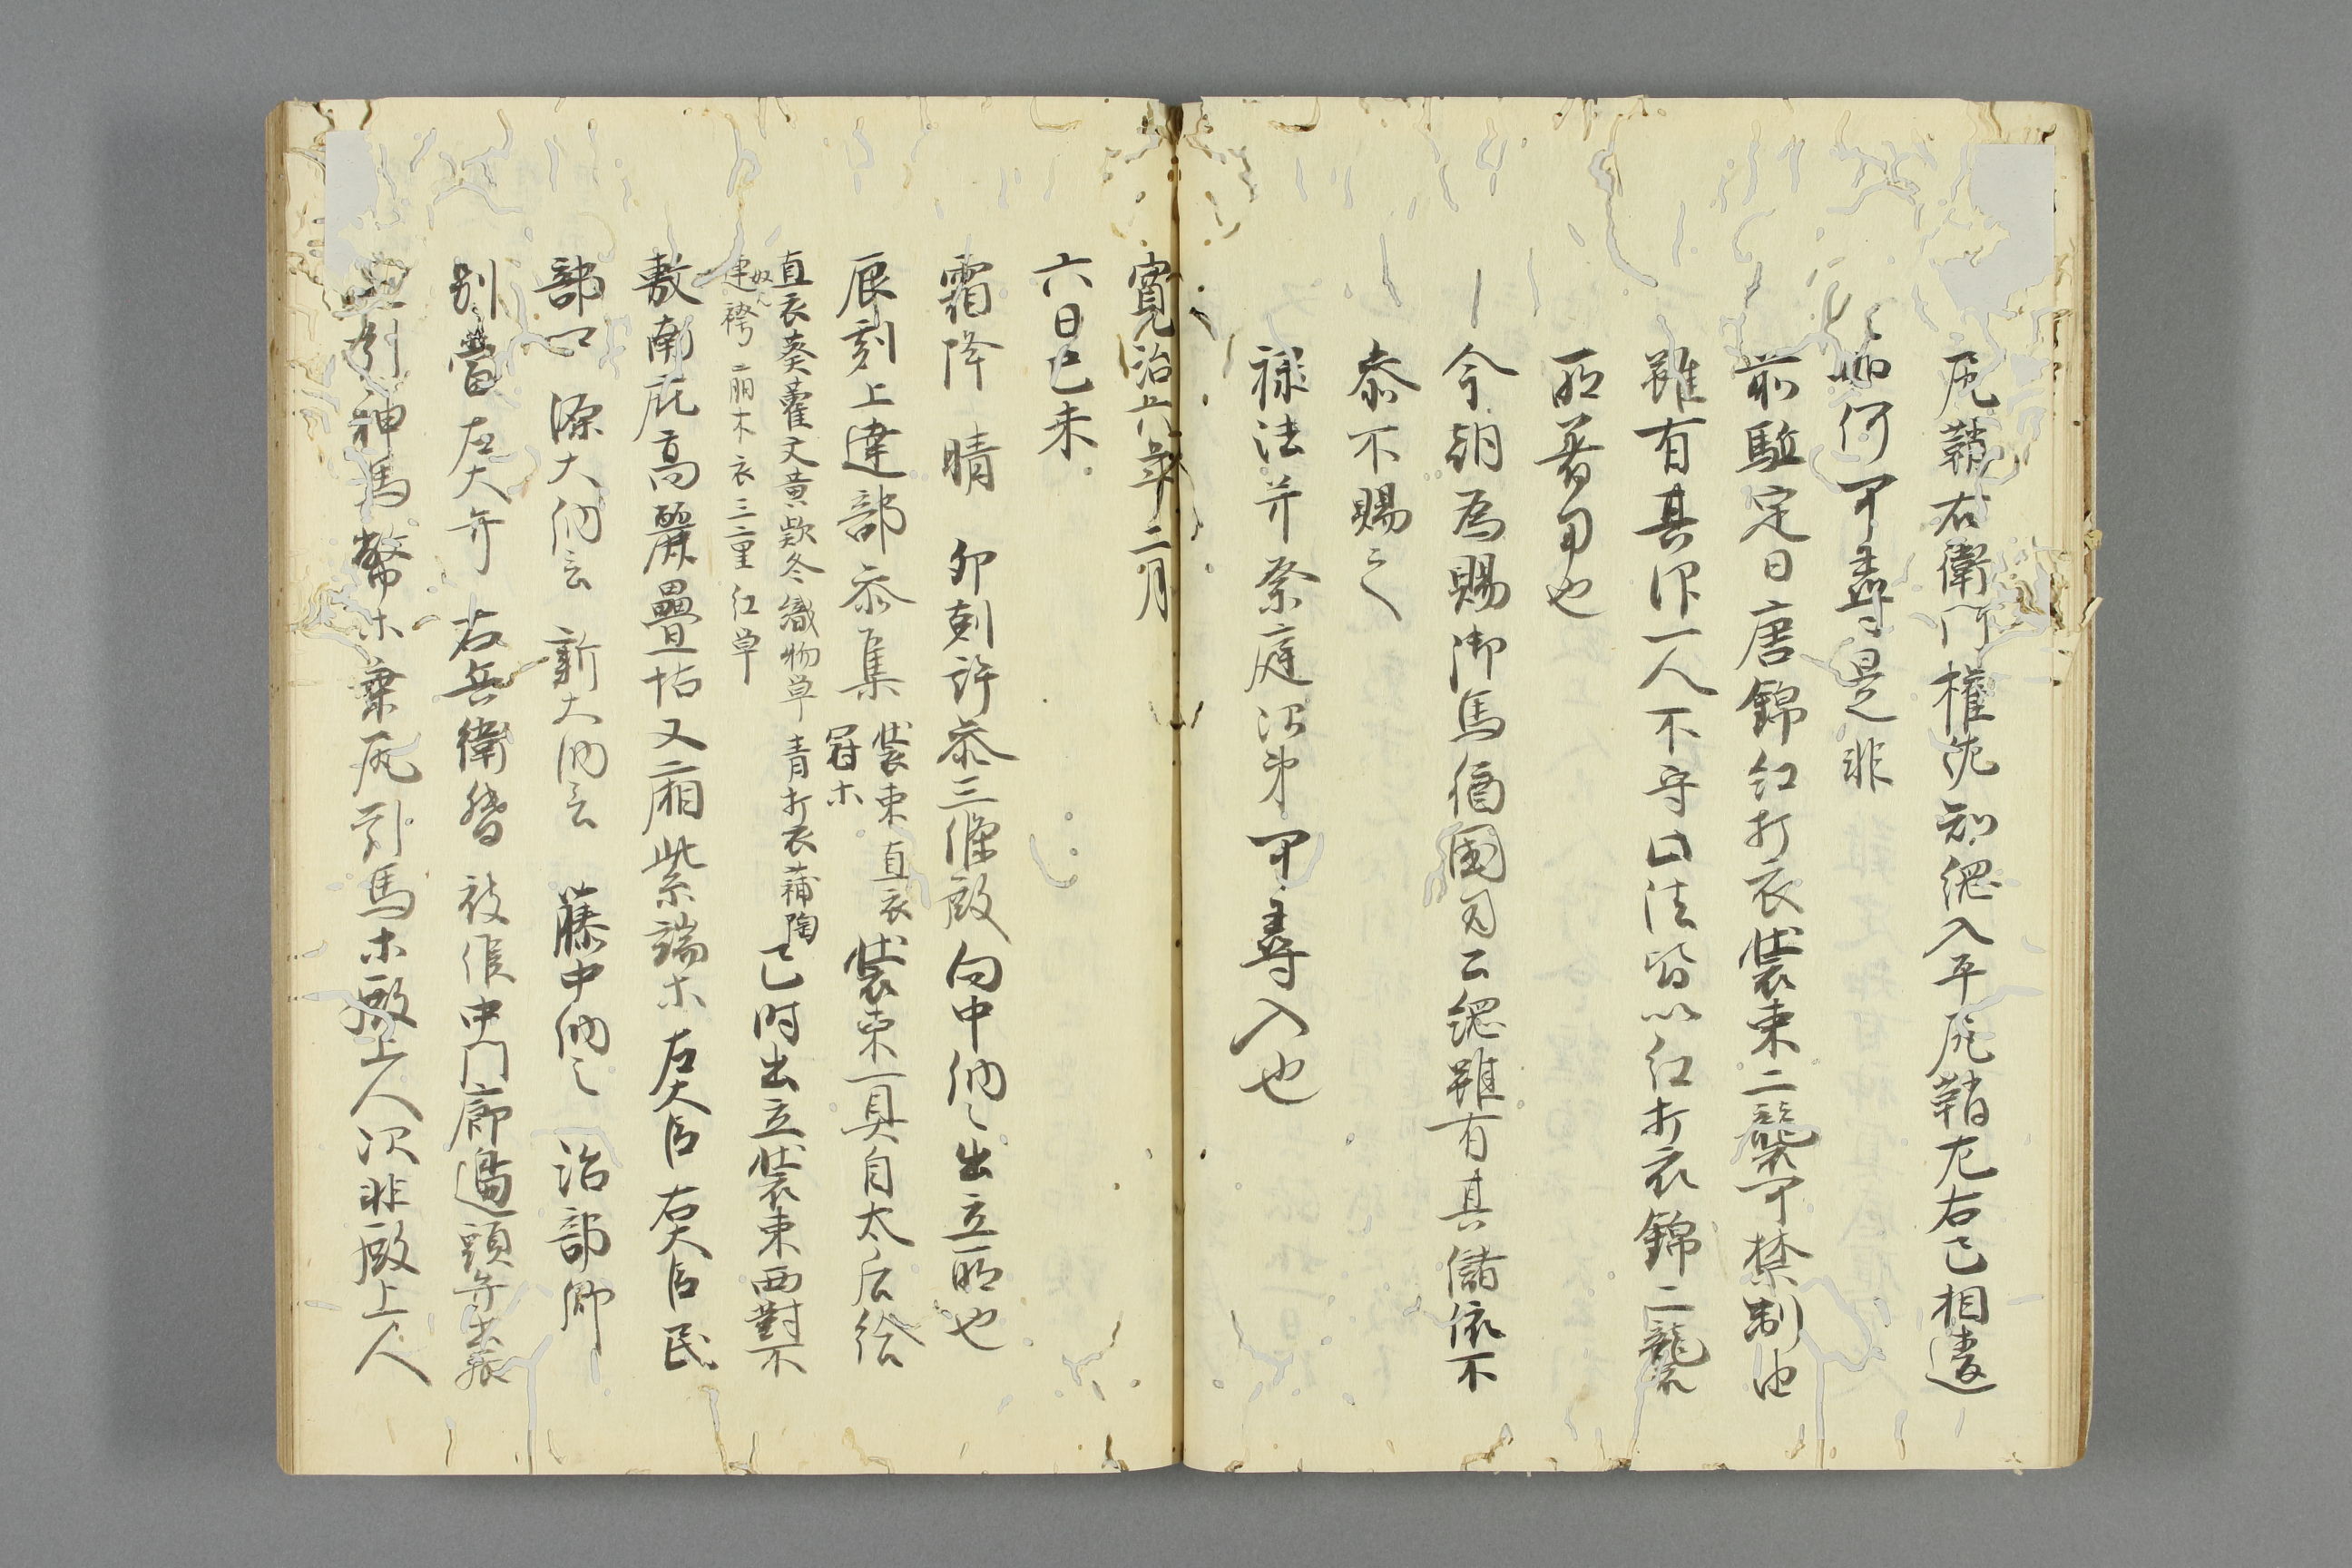 尻鞘右衛門権佐知綱入平尻鞘左右已相違
如何可尋是非
前駈定日唐錦紅打衣装束二襲可禁制由
雖有其沙一人不守此法皆以紅打衣錦二襲
所着用也
一今朝為賜御馬備国司公綱雖有其儲依不
参不賜之
禄法并祭庭次第可尋入也
寛治六年二月
六日己未
霜降 晴 卯刻許参三條殿向中納言出立所也
辰刻上達部参集 装束 直衣
冠等 装束一具自太后給
直衣葵藿文黄欵冬織物単 青打衣蒲陶
奴 連袴 二 木衣三重紅単 已時出立装束西對不
敷南庇高麗疊一帖又廂紫端等左大臣右大臣民
部口 源大納言 新大納言 藤中納言 治部卿
別當左大弁 右兵衛督 被候中門廊邉頭弁
引神馬幣等兼尻引馬等殿上人次非殿上人